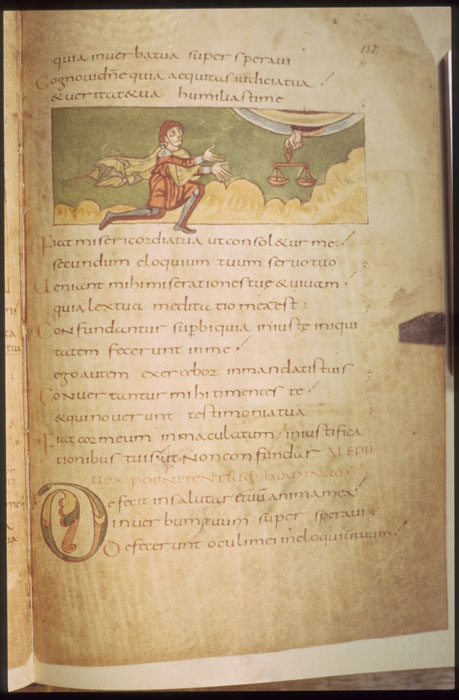 quia inverbatua super speravi
132.
Cognovi dne quia aequitas iudiciatua
&veritat&ua humiliastime
Fiat misericordiatua utconsol&ur me
secundum eloquium tuum servotuo
Veniant mihi miserationestue &vivam
quialextua meditatio mea est:
Confundantur supbi quia iniuste iniqui
tatem fecerunt inme
ego autem exercebor inmandatistuis
Convertantur mihi timentes te
&qui noverunt testimoniatua
Fiat cor meum inmaculatum iniustifica
tionibus tuis ut non confundar
Defecit insalutare tuum anima mea
inverbum tuum super speravi
Defecerunt oculimei ineloquiumtuum